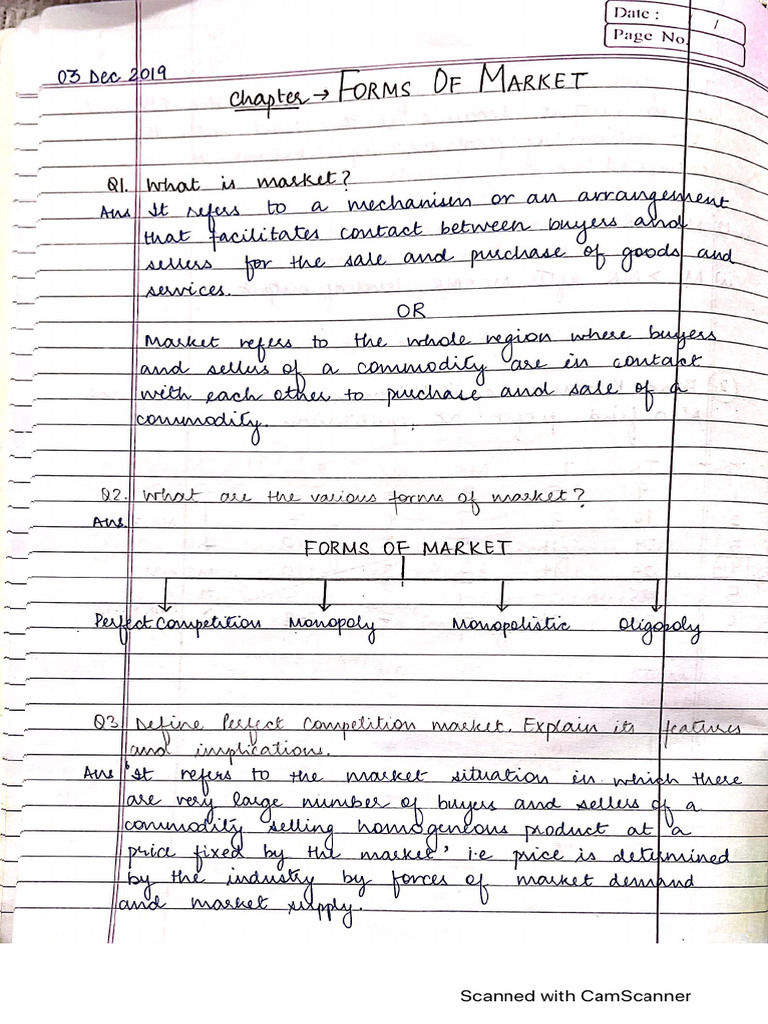 Date :
Page No.
03 Dec 2019
Chapter → FORMS OF MARKET
Q1. What is market?
Ans It refers to a mechanism or an arrangement
that facilitates contact between buyers and
sellers for the sale and purchase of goods and
services.
OR
Market refers to the whole region where buyers
and sellers of a commodity are in contact
with each other to purchase and sale of a
commodity.
Q2. What are the various forms of market?
Ans.
FORMS OF MARKET
Perfect Competition Monopoly Monopolistic Oligopoly
Q3 Define Perfect Competition market. Explain its features
and implications.
Ans 'It refers to the market situation in which there
are very large number of buyers and sellers of a
commodity selling homogeneous product at a
price fixed by the market' i.e price is determined
by the industry by forces of market demand
and market supply.
Scanned with CamScanner